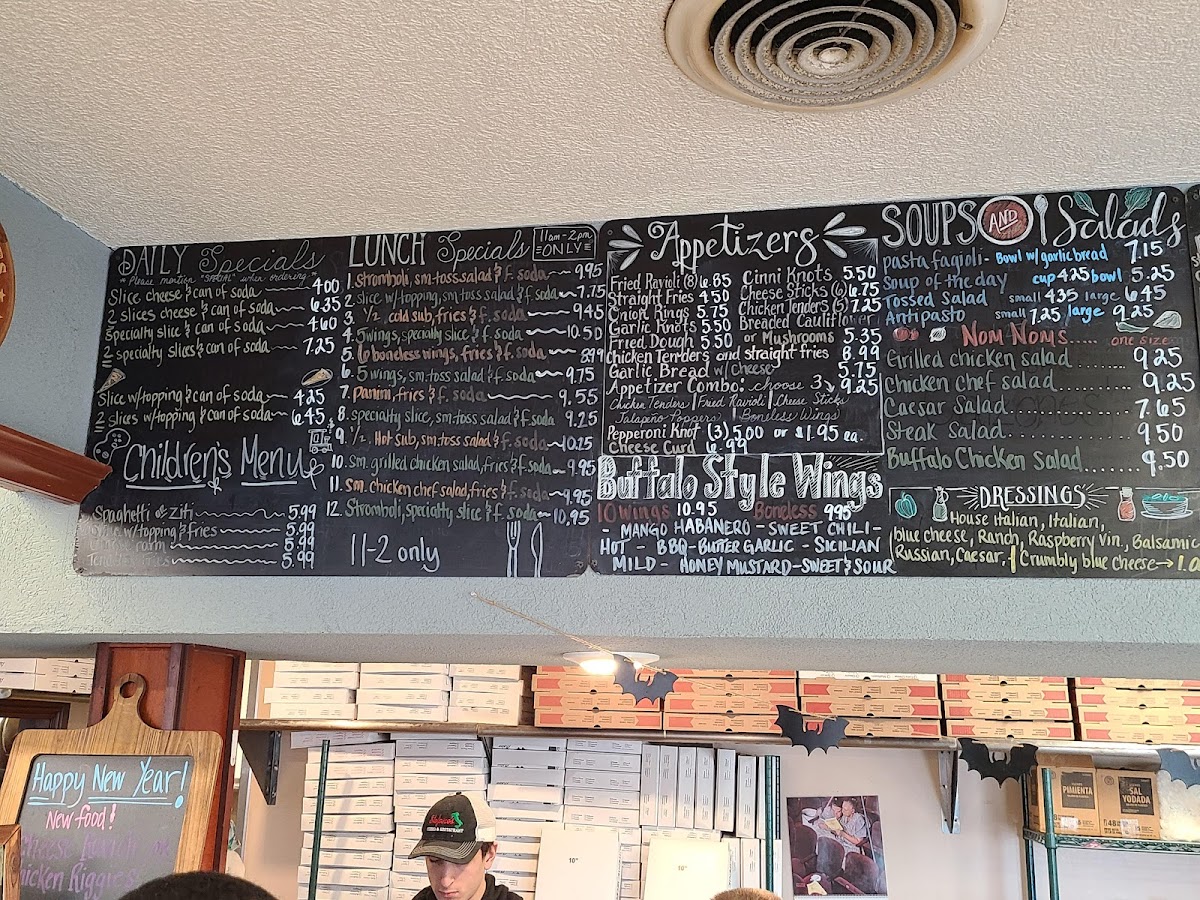 DAILY Specials
* Please mention "SPECIAL" when ordering *
Slice cheese & can of soda 4.00
2 slices cheese & can of soda 6.35
Specialty slice & can of soda 4.60
2 specialty slices & can of soda 7.25
Slice w/topping & can of soda 4.25
2 slices w/topping & can of soda 6.45
Children's Menu
Spaghetti or Ziti 5.99
Slice w/topping & fries 5.99
5.99
5.99
LUNCH Specials
11am-2pm
=ONLY=
1. stromboli, sm. toss salad & f. soda 9.95
2. slice w/topping, sm. toss salad & f. soda 7.75
3. 1/2 cold sub, fries & f. soda 9.45
4. 5 wings, specialty slice & f. soda 10.50
5. 6 boneless wings, fries & f. soda 8.99
6. 5 wings, sm. toss salad & f. soda 9.75
7. Panini, fries & f. soda 9.55
8. specialty slice, sm. toss salad & f. soda 9.25
9. 1/2 Hot sub, sm. toss salad & f. soda 10.25
10. sm. grilled chicken salad, fries & f. soda 9.95
11. sm. chicken chef salad, fries & f. soda 9.95
12. Stromboli, specialty slice & f. soda 10.95
11-2 only
Appetizers
Fried Ravioli (8) 6.85
Straight Fries 4.50
Onion Rings 5.75
Garlic Knots 5.50
Fried Dough 5.50
Cinni Knots 5.50
Cheese Sticks (6) 6.75
Chicken Tenders (5) 7.25
Breaded Cauliflower
or Mushrooms 5.35
Chicken Tenders and straight fries 8.99
Garlic Bread w/cheese 5.75
Appetizer Combo: choose 3 9.25
Chicken Tenders | Fried Ravioli | Cheese Sticks
Jalapeño Poppers | Boneless Wings
Pepperoni Knot (3) 5.00 or $1.95 ea.
Cheese Curd 6.99
Buffalo Style Wings
10 WINGS 10.95 Boneless 9.95
- MANGO HABANERO - SWEET CHILI -
HOT - BBQ - BUTTER GARLIC - SICILIAN
MILD - HONEY MUSTARD - SWEET & SOUR
SOUPS AND Salads
pasta fagioli - Bowl w/ garlic bread 7.15
Soup of the day cup 4.25 bowl 5.25
Tossed Salad small 4.35 large 6.45
Antipasto small 7.25 large 9.25
Nom Noms..... one size
Grilled chicken salad 9.25
Chicken chef salad 9.25
Caesar Salad 7.65
Steak Salad 9.50
Buffalo Chicken Salad 9.50
DRESSINGS
House italian, Italian,
blue cheese, Ranch, Raspberry Vin., Balsamic
Russian, Caesar, | Crumbly blue cheese→
Happy New Year!
New food!
10"
10"
PIMIENTA
SAL
YODADA